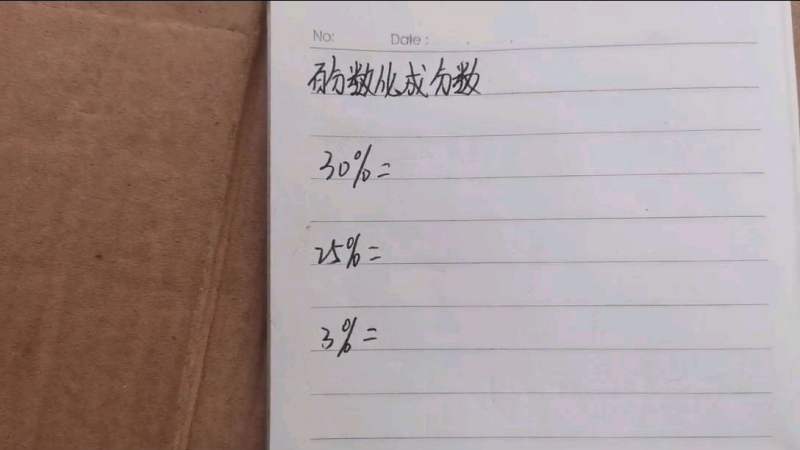 No: Date :
百分数化成分数
30%=
25%=
3%=